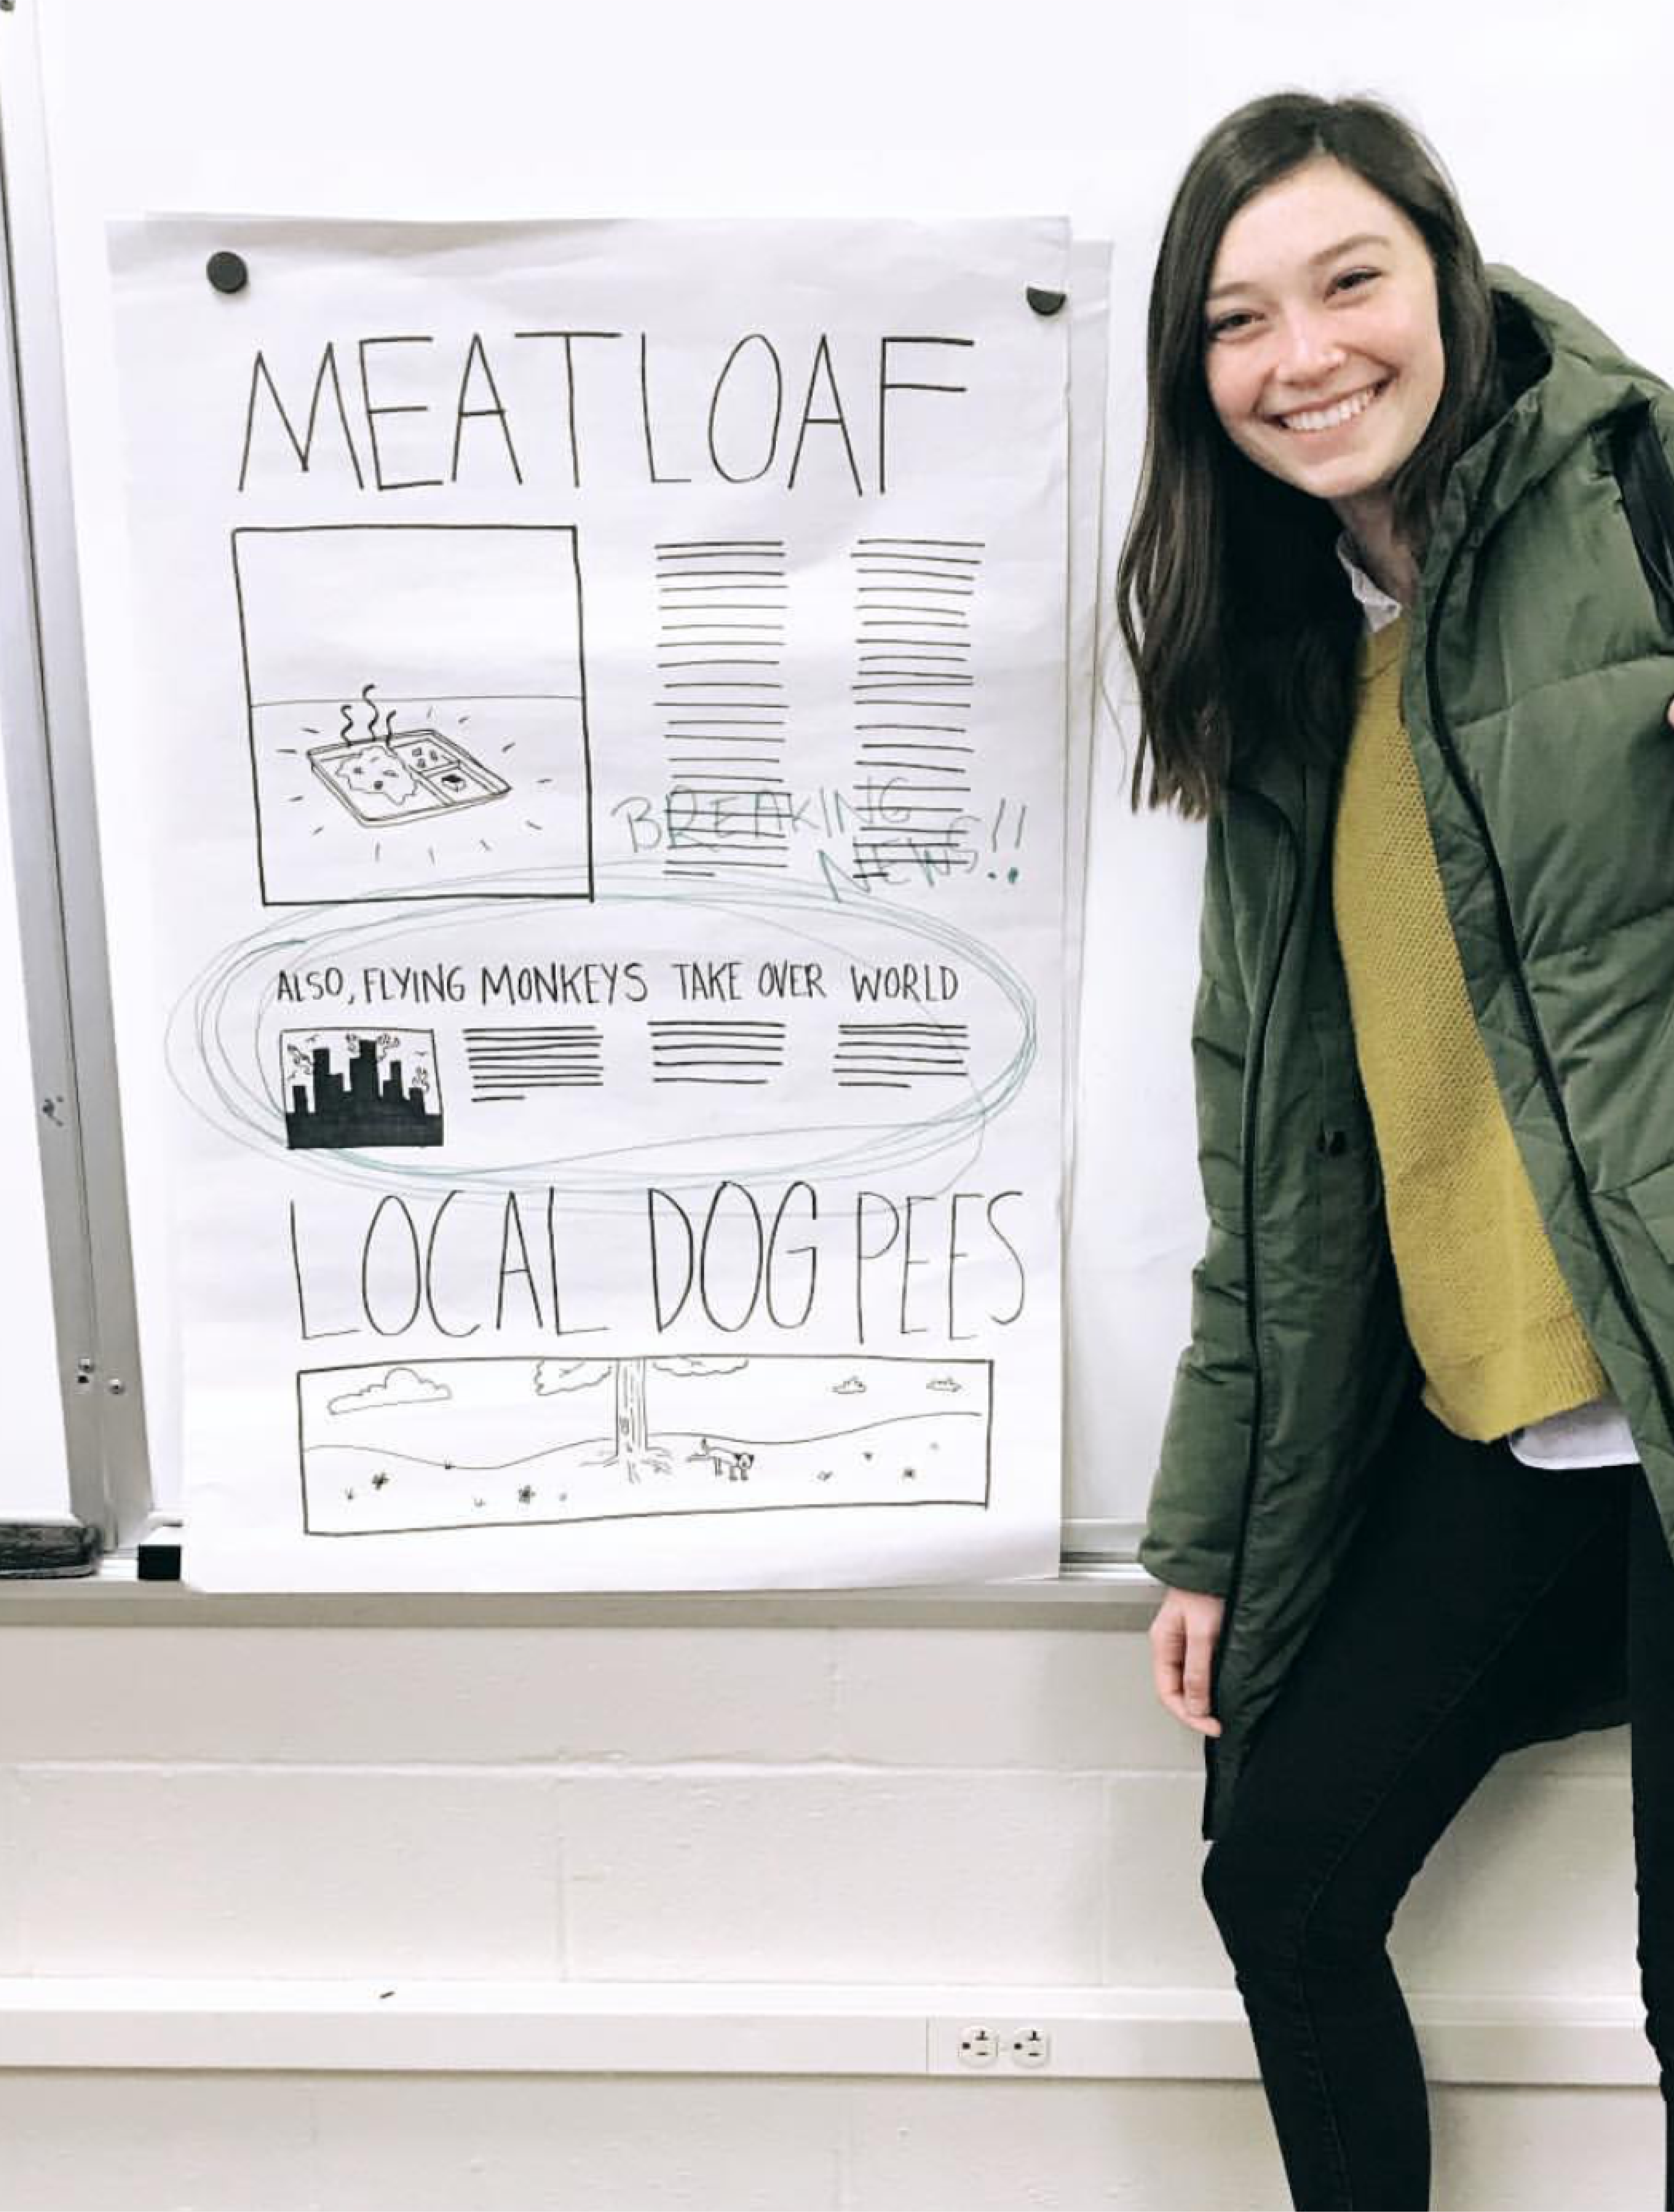 MEATLOAF
BREAKING
NEWS!!
ALSO, FLYING MONKEYS TAKE OVER WORLD
LOCAL DOG PEES